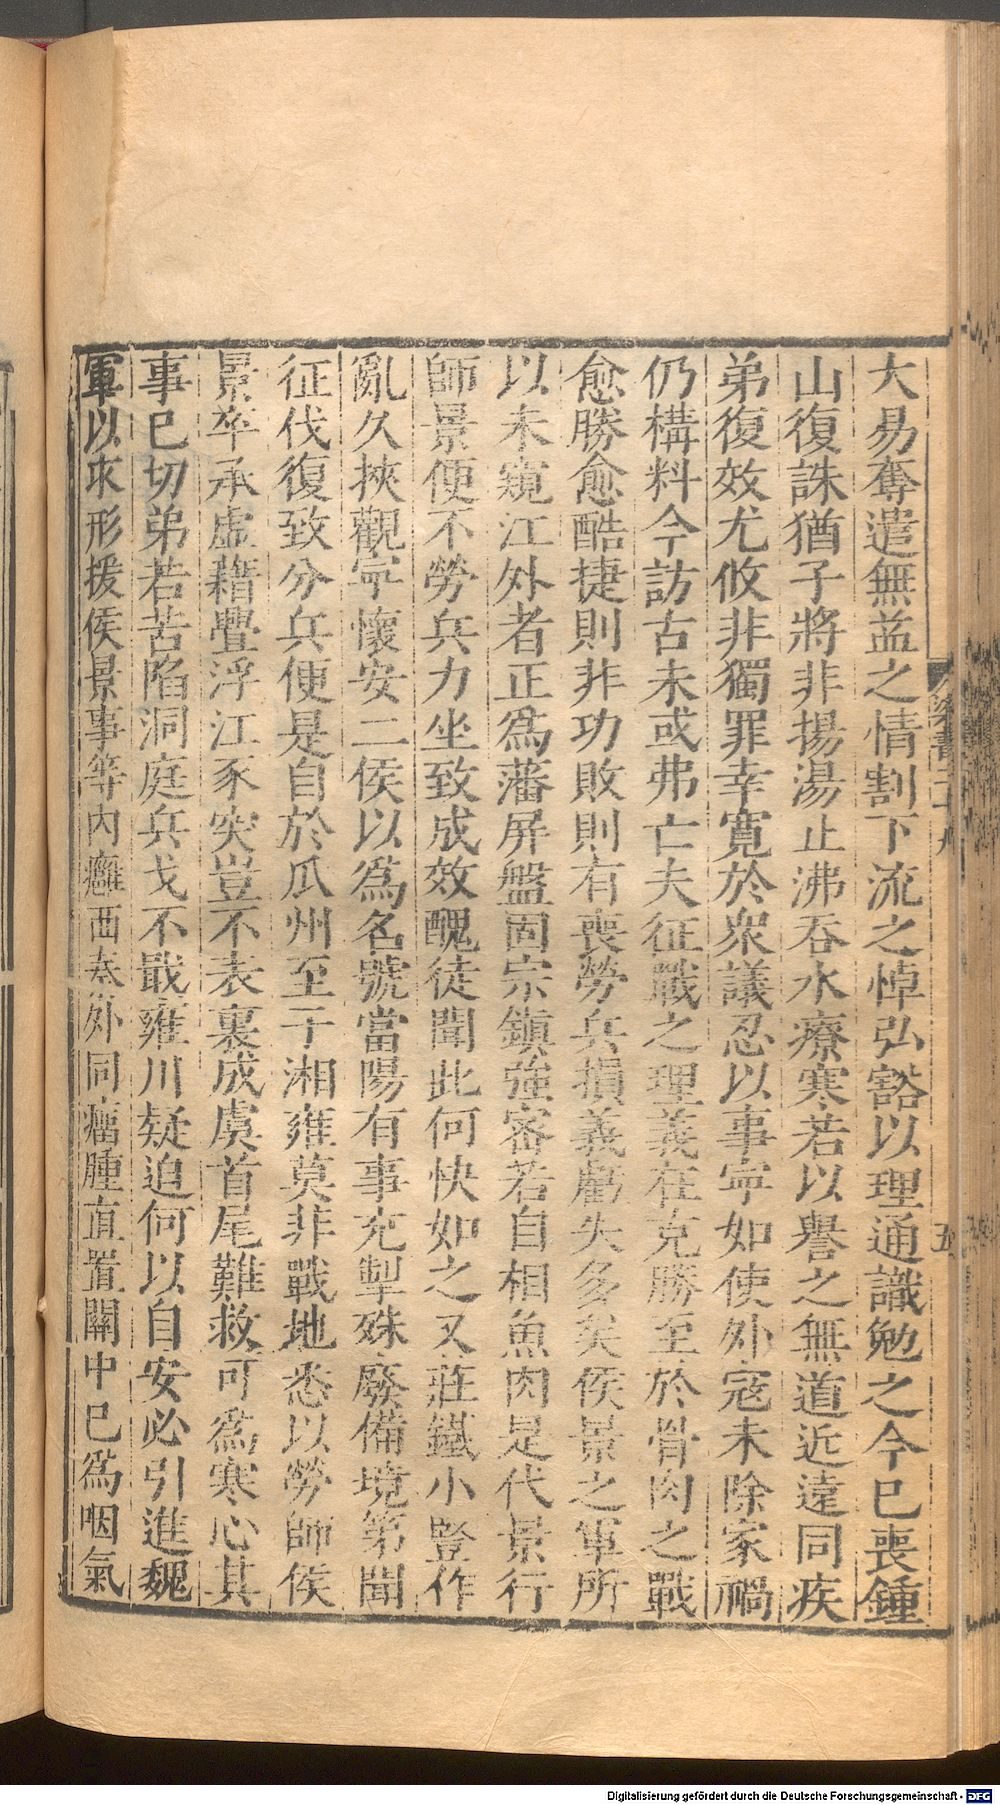 大易奪遣無益之情割下流之悼弘豁以理通識勉之今已喪鍾
山復誅猶子將非揚湯止沸吞水療寒若以譽之無道近遠同疾
弟復效尤攸非獨罪幸寬於衆議忍以事寧如使外寇未除家禍
仍構料今訪古未或弗亡夫征戰之理義在克勝至於骨肉之戰
愈勝愈酷捷則非功敗則有喪勞兵損義虧失多矣侯景之軍所
以未窺江外者正爲藩屏盤固宗鎮強密若自相魚肉是代景行
師景便不勞兵力坐致成效醜徒聞此何快如之又莊鐵小豎作
亂久挾觀寧懷安二侯以爲名號當陽有事充掣殊廢備境第聞
征伐復致分兵便是自於瓜州至于湘雍莫非戰地悉以勞師侯
景卒承虛藉釁浮江豕突豈不表裏成虞首尾難救可爲寒心其
事已切弟若苦陷洞庭兵戈不戢雍川疑迫何以自安必引進魏
軍以求形援侯景事等內癰西秦外同瘤腫直置關中已爲咽氣
梁書二十九
五
Digitalisierung gefördert durch die Deutsche Forschungsgemeinschaft - DFG